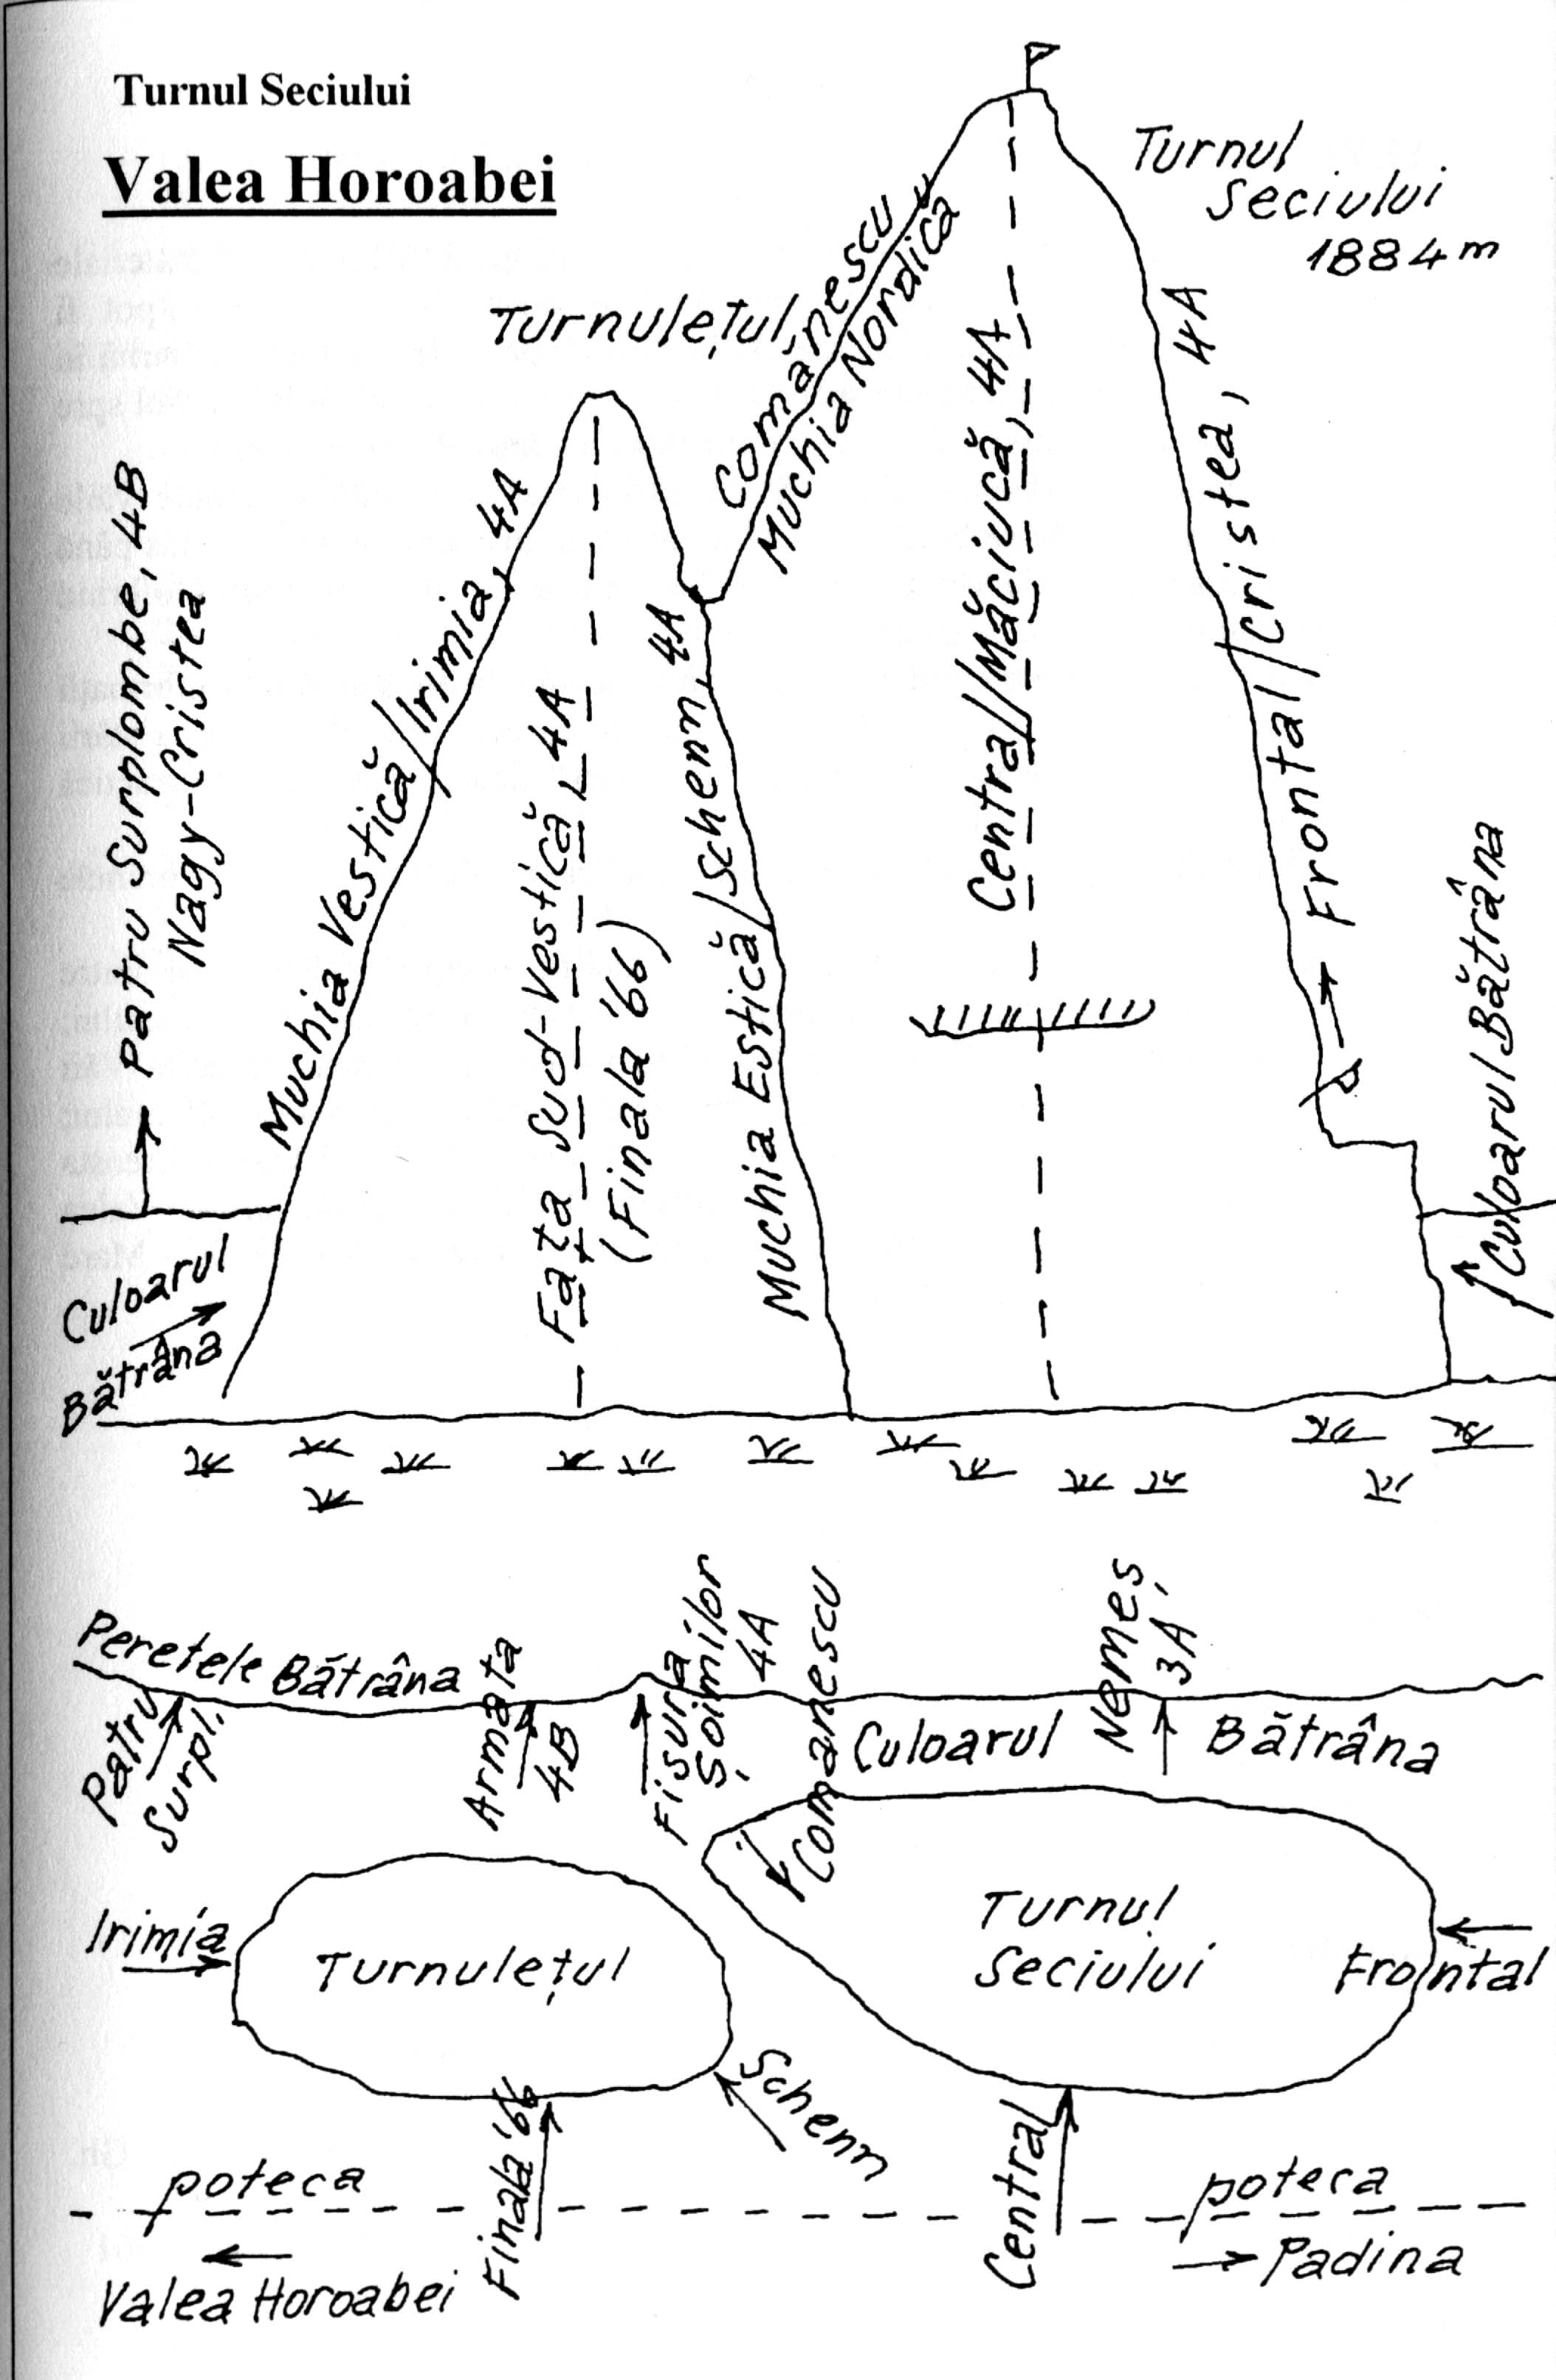 Turnul Seciului
Valea Horoabei
Turnul
Seciului
1884 m
Turnulețul
Comănescu
Muchia Nordică
Central/Măciucă, 4A
Frontal/Cristea, 4A
Patru Surplombe, 4B
Nagy-Cristea
Muchia Vestică/Irimia, 4A
Fața Sud-Vestică, 4A
(Finala '66)
Muchia Estică/Schenn, 4A
Culoarul
Bătrâna
Culoarul Bătrâna
Peretele Bătrâna
Patru
Surpl.
Armata
4B
Fisura
Șoimilor
4A
Comănescu
Culoarul
Nemeș,
3A
Bătrâna
Irimia
Turnulețul
Turnul
Seciului
Frontal
Schenn
Finala '66
Central
poteca
poteca
Valea Horoabei
Padina